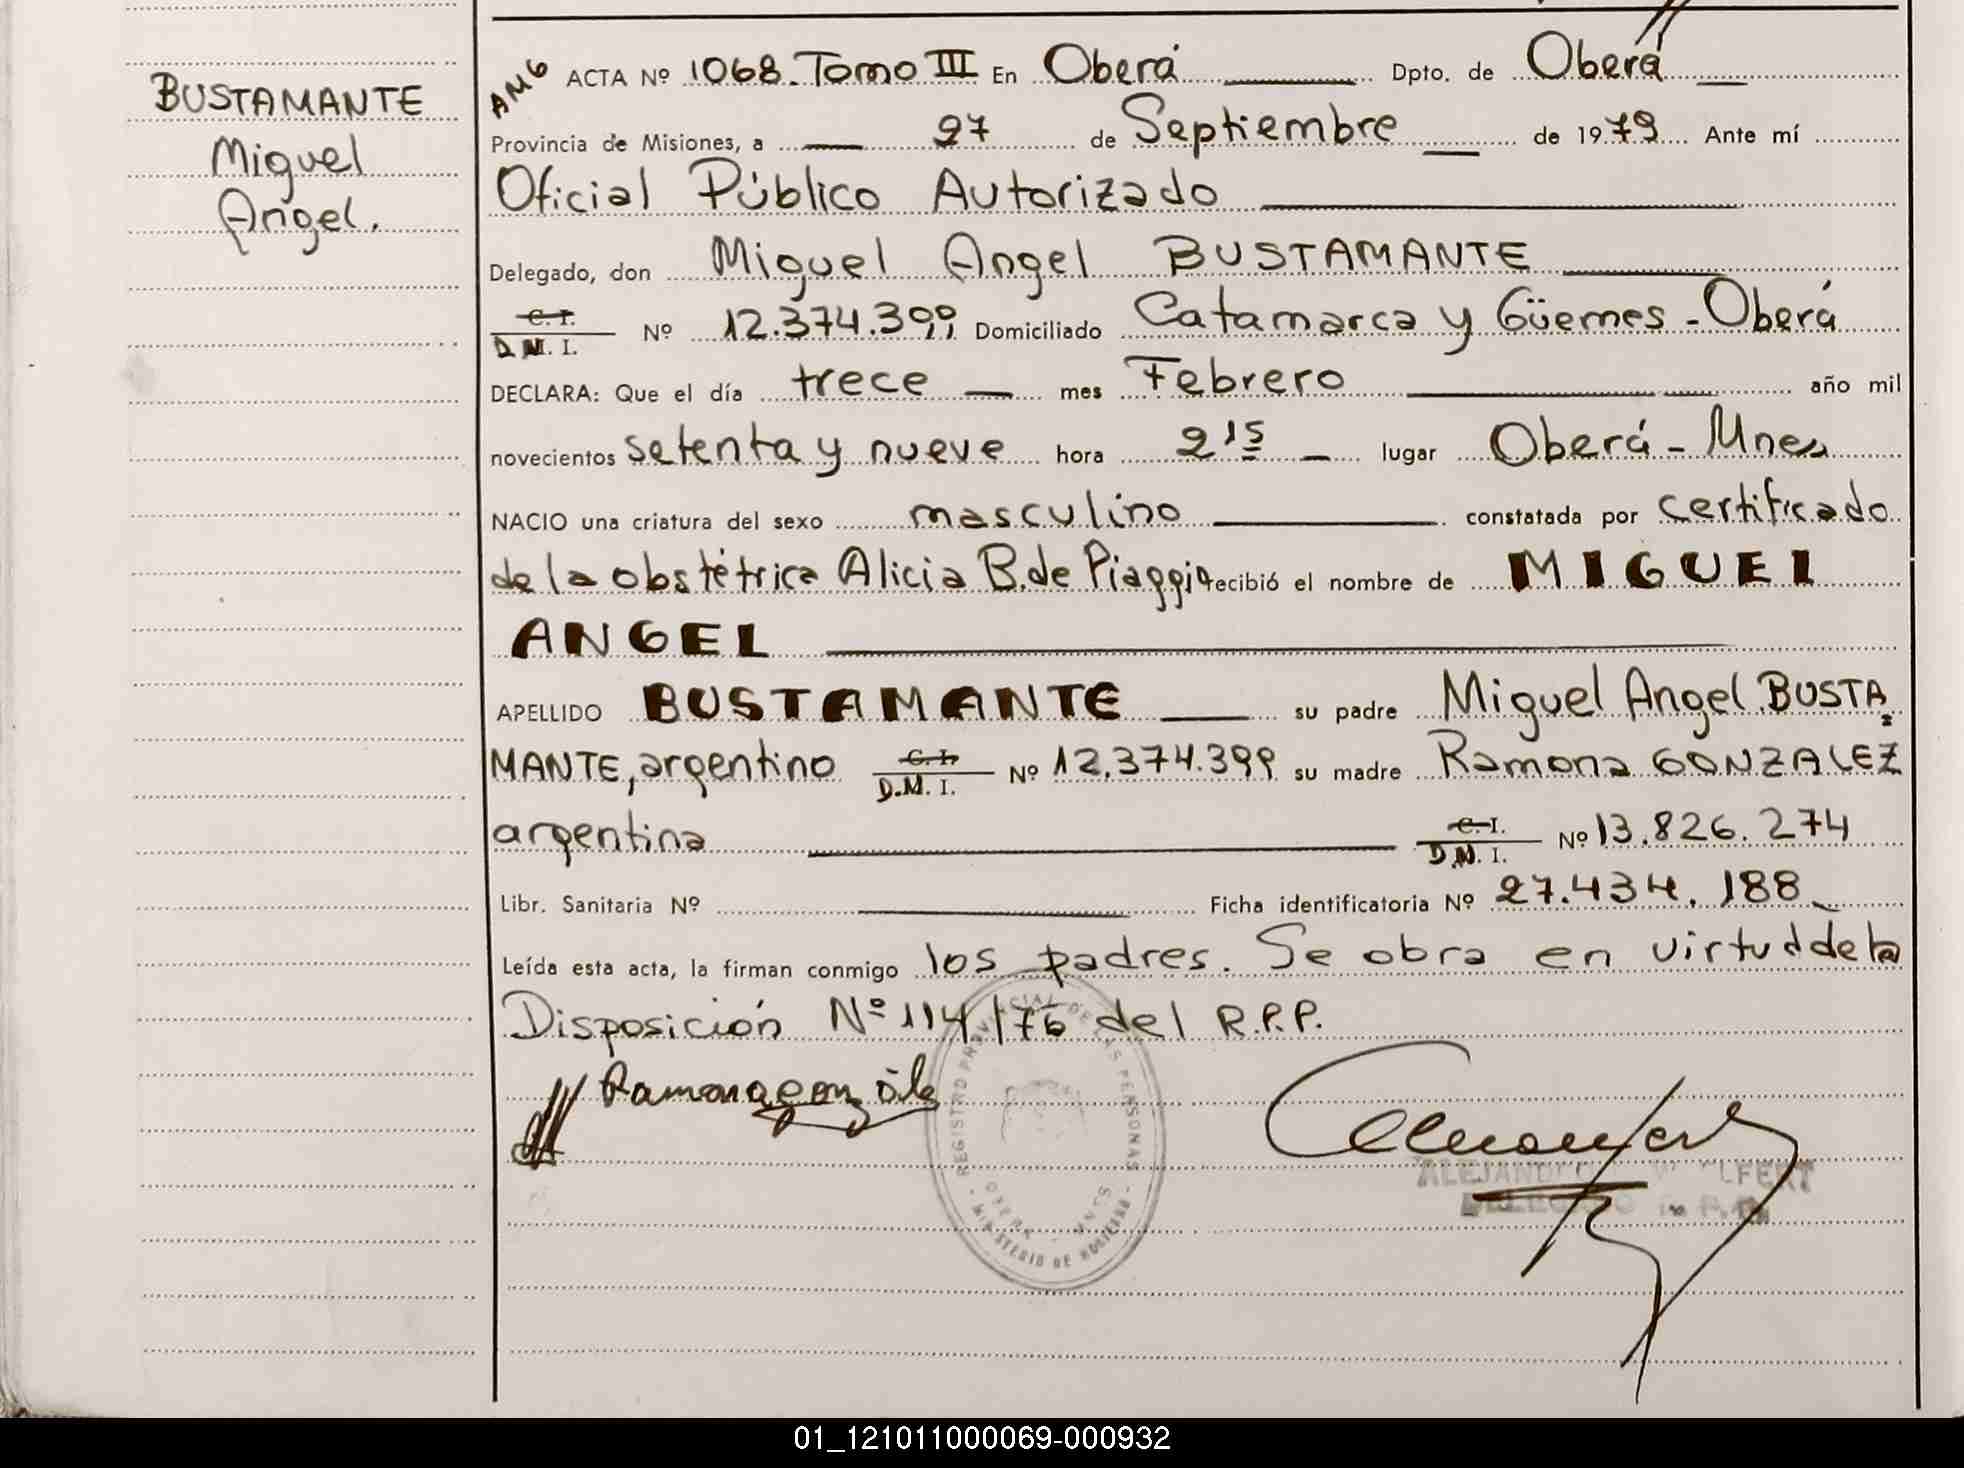 BUSTAMANTE
Miguel
Angel.
AMG ACTA Nº 1068. Tomo III En Oberá Dpto. de Oberá
Provincia de Misiones, a 27 de Septiembre de 1979 Ante mí
Oficial Público Autorizado
Delegado, don Miguel Angel BUSTAMANTE
C. I. / D.N. I. Nº 12.374.399 Domiciliado Catamarca y Güemes - Oberá
DECLARA: Que el día trece mes Febrero año mil
novecientos setenta y nueve hora 2 15 lugar Oberá - Mnes
NACIO una criatura del sexo masculino constatada por certificado
de la obstétrica Alicia B. de Piaggio recibió el nombre de MIGUEL
ANGEL
APELLIDO BUSTAMANTE su padre Miguel Angel BUSTA
MANTE, argentino C. I. / D.M. I. Nº 12.374.399 su madre Ramona GONZALEZ
argentina C. I. / D.N. I. Nº 13.826.274
Libr. Sanitaria Nº Ficha identificatoria Nº 27.434.188
Leída esta acta, la firman conmigo los padres. Se obra en virtud de la
Disposición Nº 114/76 del R.P.P.
Ramona
REGISTRO PROVINCIAL DE LAS PERSONAS
MINISTERIO DE
OBERA
DELEGADO R. P. P.
01_121011000069-000932